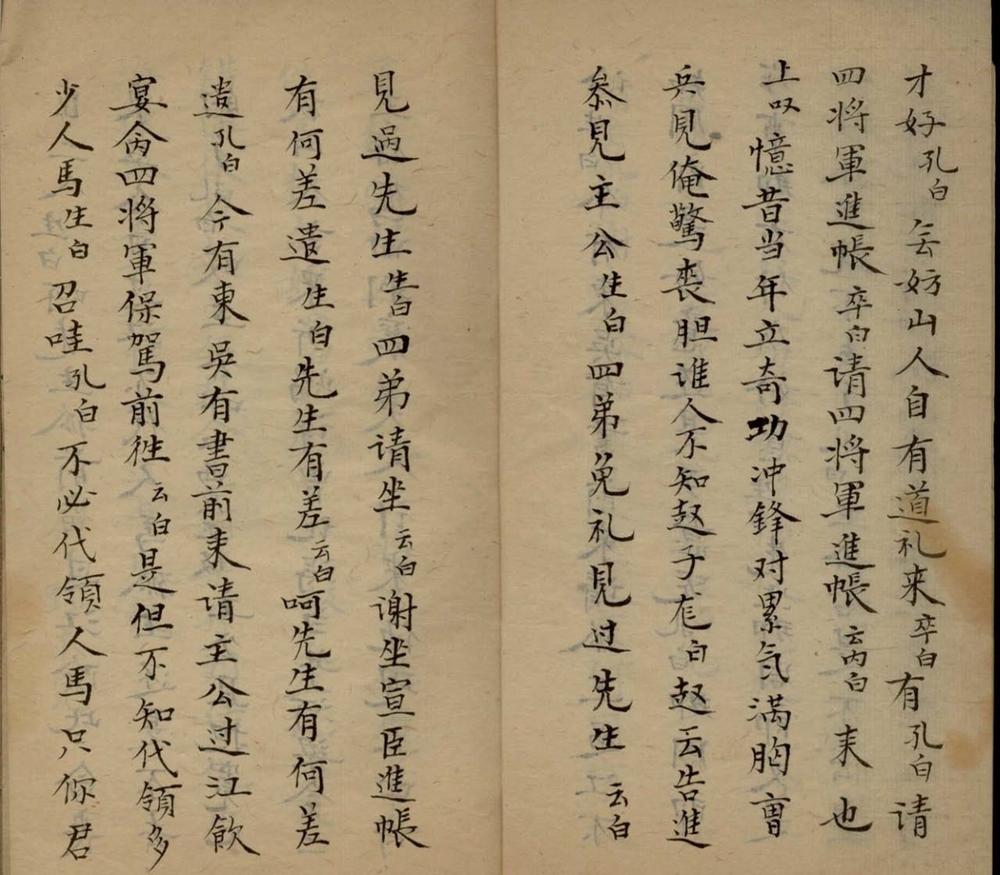 才好孔白云妨山人自有道礼来卒白有孔白请
四将軍進帳卒白请四将軍進帳云内白来也
上㕥憶昔当年立奇功冲鋒对累气满胸曹
兵見俺驚丧胆谁人不知赵子龙白赵云告進
叅見主公生白四弟免礼見过先生云白
見過先生生白四弟请坐云白谢坐宣臣進帳
有何差遣生白先生有差云白呵先生有何差
遣孔白今有東吳有書前来请主公过江飲
宴命四将軍保驾前徃云白是但不知代领多
少人馬生白召哇孔白不必代领人馬只你君